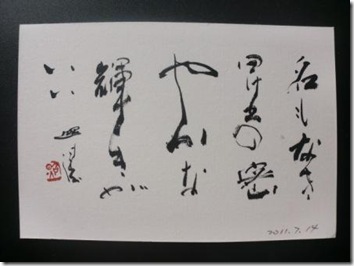 名もなき
の密
やかな
輝きが
いい
2011.7.14